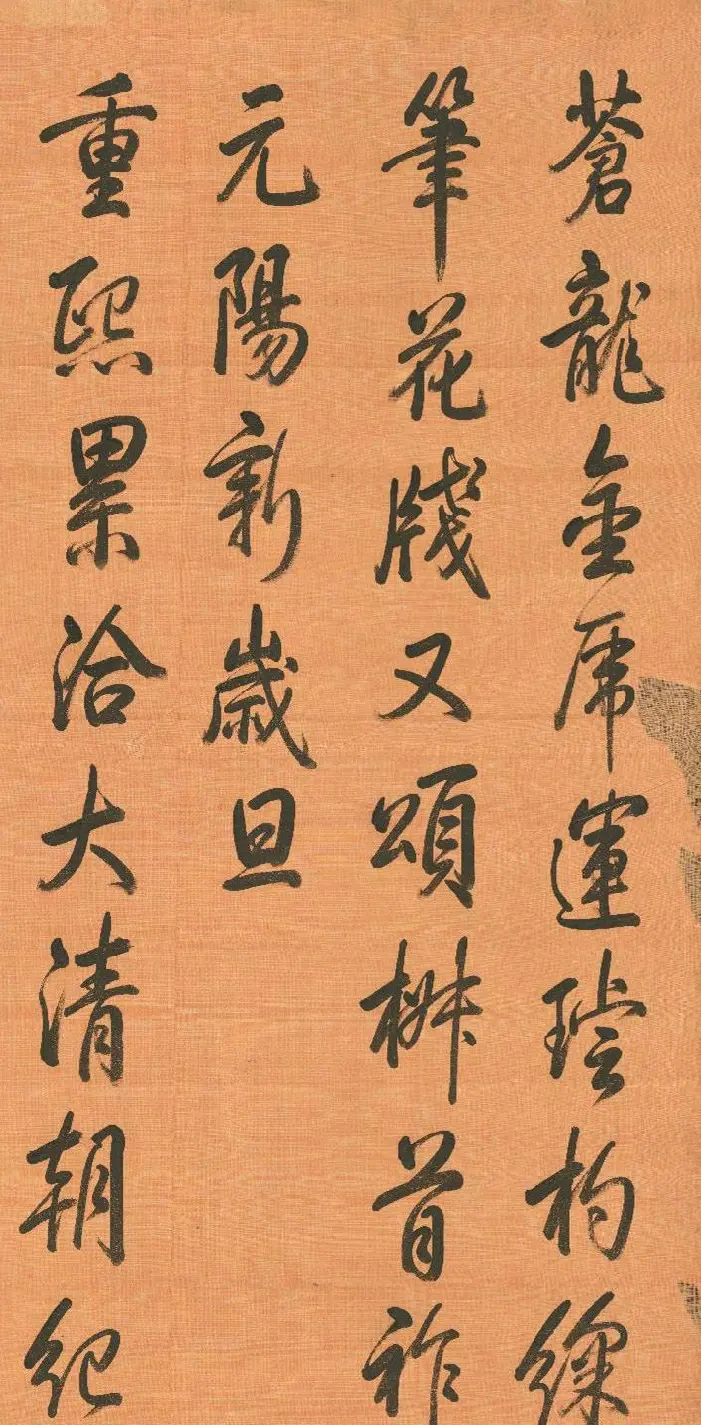 蒼龍金虎運璿杓綵
筆花牋又頌椒首祚
元陽新歲旦
重熙累洽大清朝紀